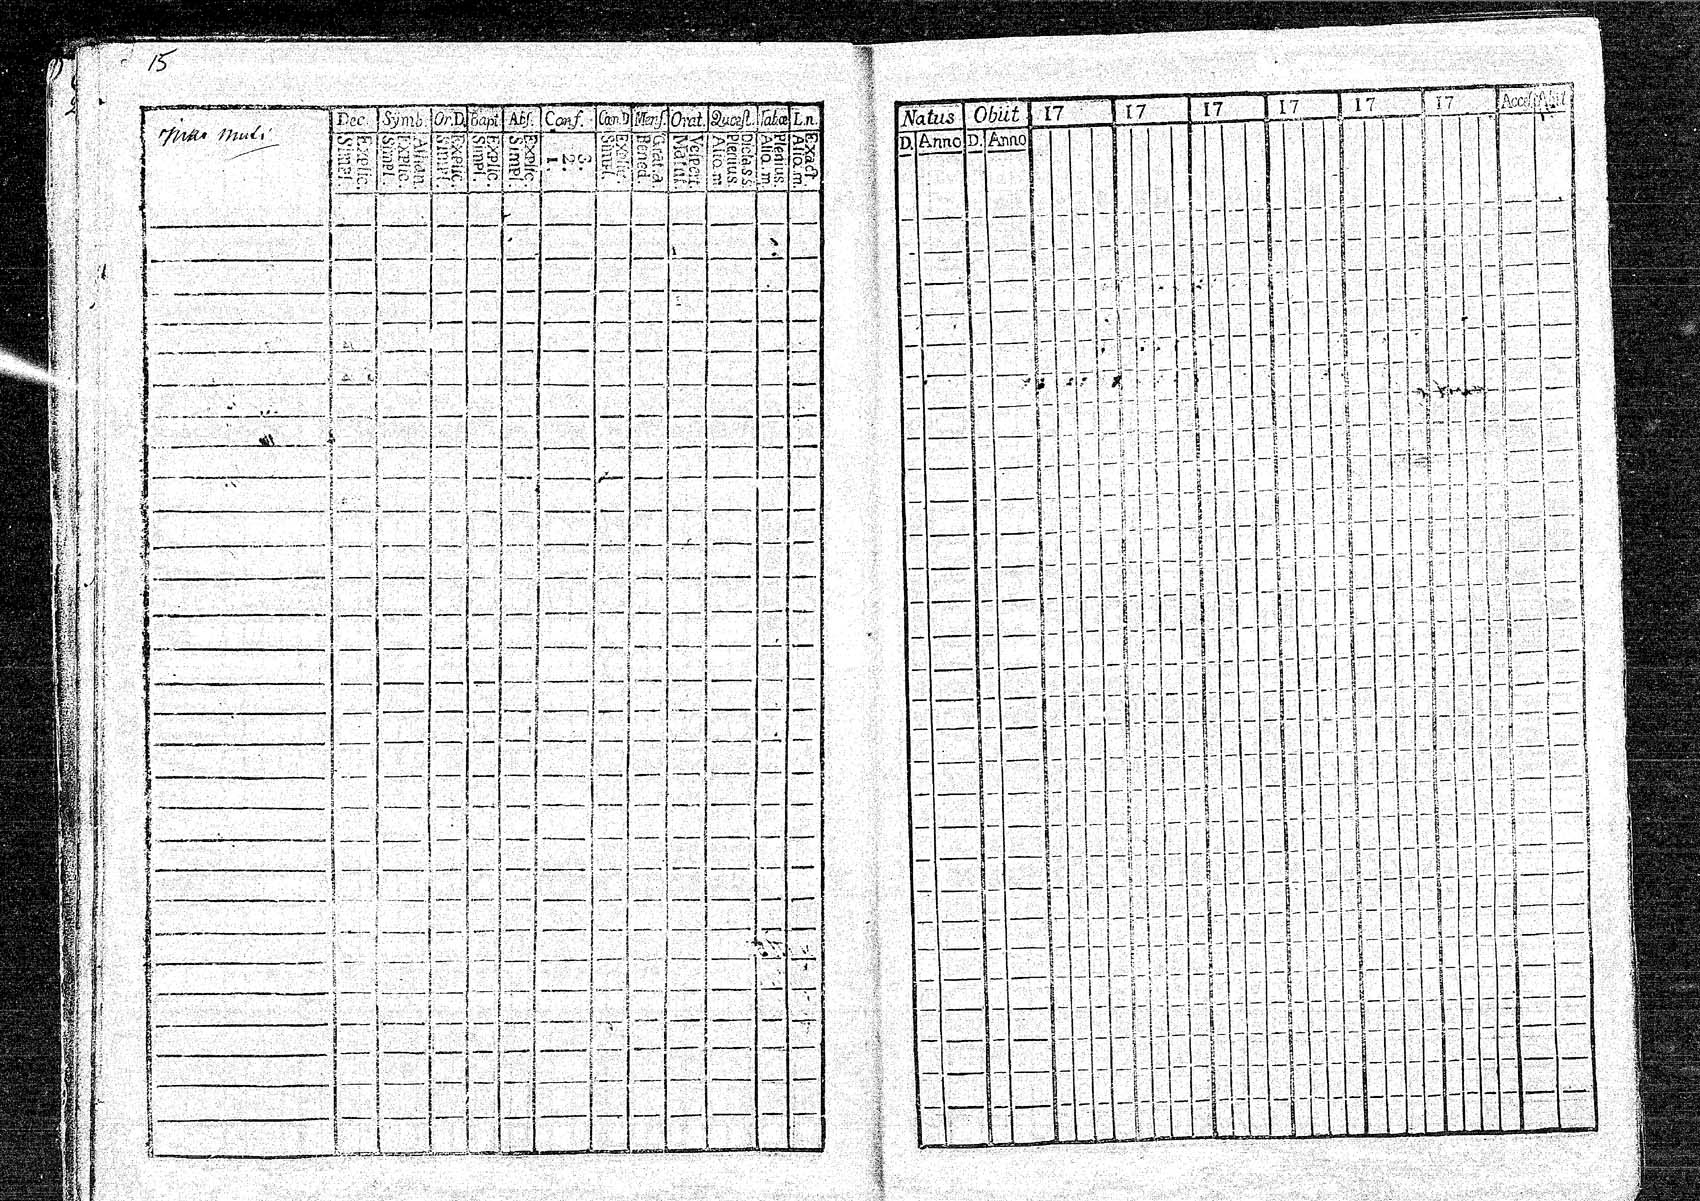 15
Dec. Symb. Or.D. Bapt. Abs. Conf. Can.D Mens. Orat. Quæst. Tabæ L.n.
Explic. Simpl. Athan. Explic. Simpl. Explic. Simpl. Explic. Simpl. Explic. Simpl. 3. 2. 1. Explic. Simpl. Grat.a. Bened. Vesper. Matut. Dict.s.s. Plenius. Alio.m Plenius. Alio.m. Exact. Alio.m.
Natus Obiit 17 17 17 17 17 17 Acces. Abit
D. Anno D. Anno